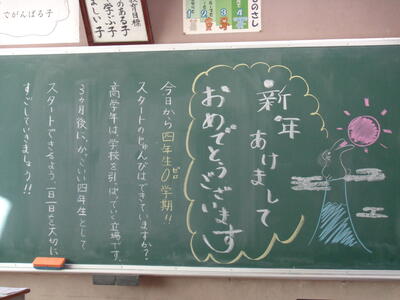 でがんばる子
教育目標
のある子
学ぶ子
しい子
ものさし
新年
あけまして
おめでとうございます
今日から四年生0学期!!
ゼロ
スタートのじゅんびはできていますか?
高学年は、学校を引っぱっていく立場です。
3ヵ月後に、かっこいい四年生として
スタートできるよう、一日一日を大切に
すごしていきましょう!!